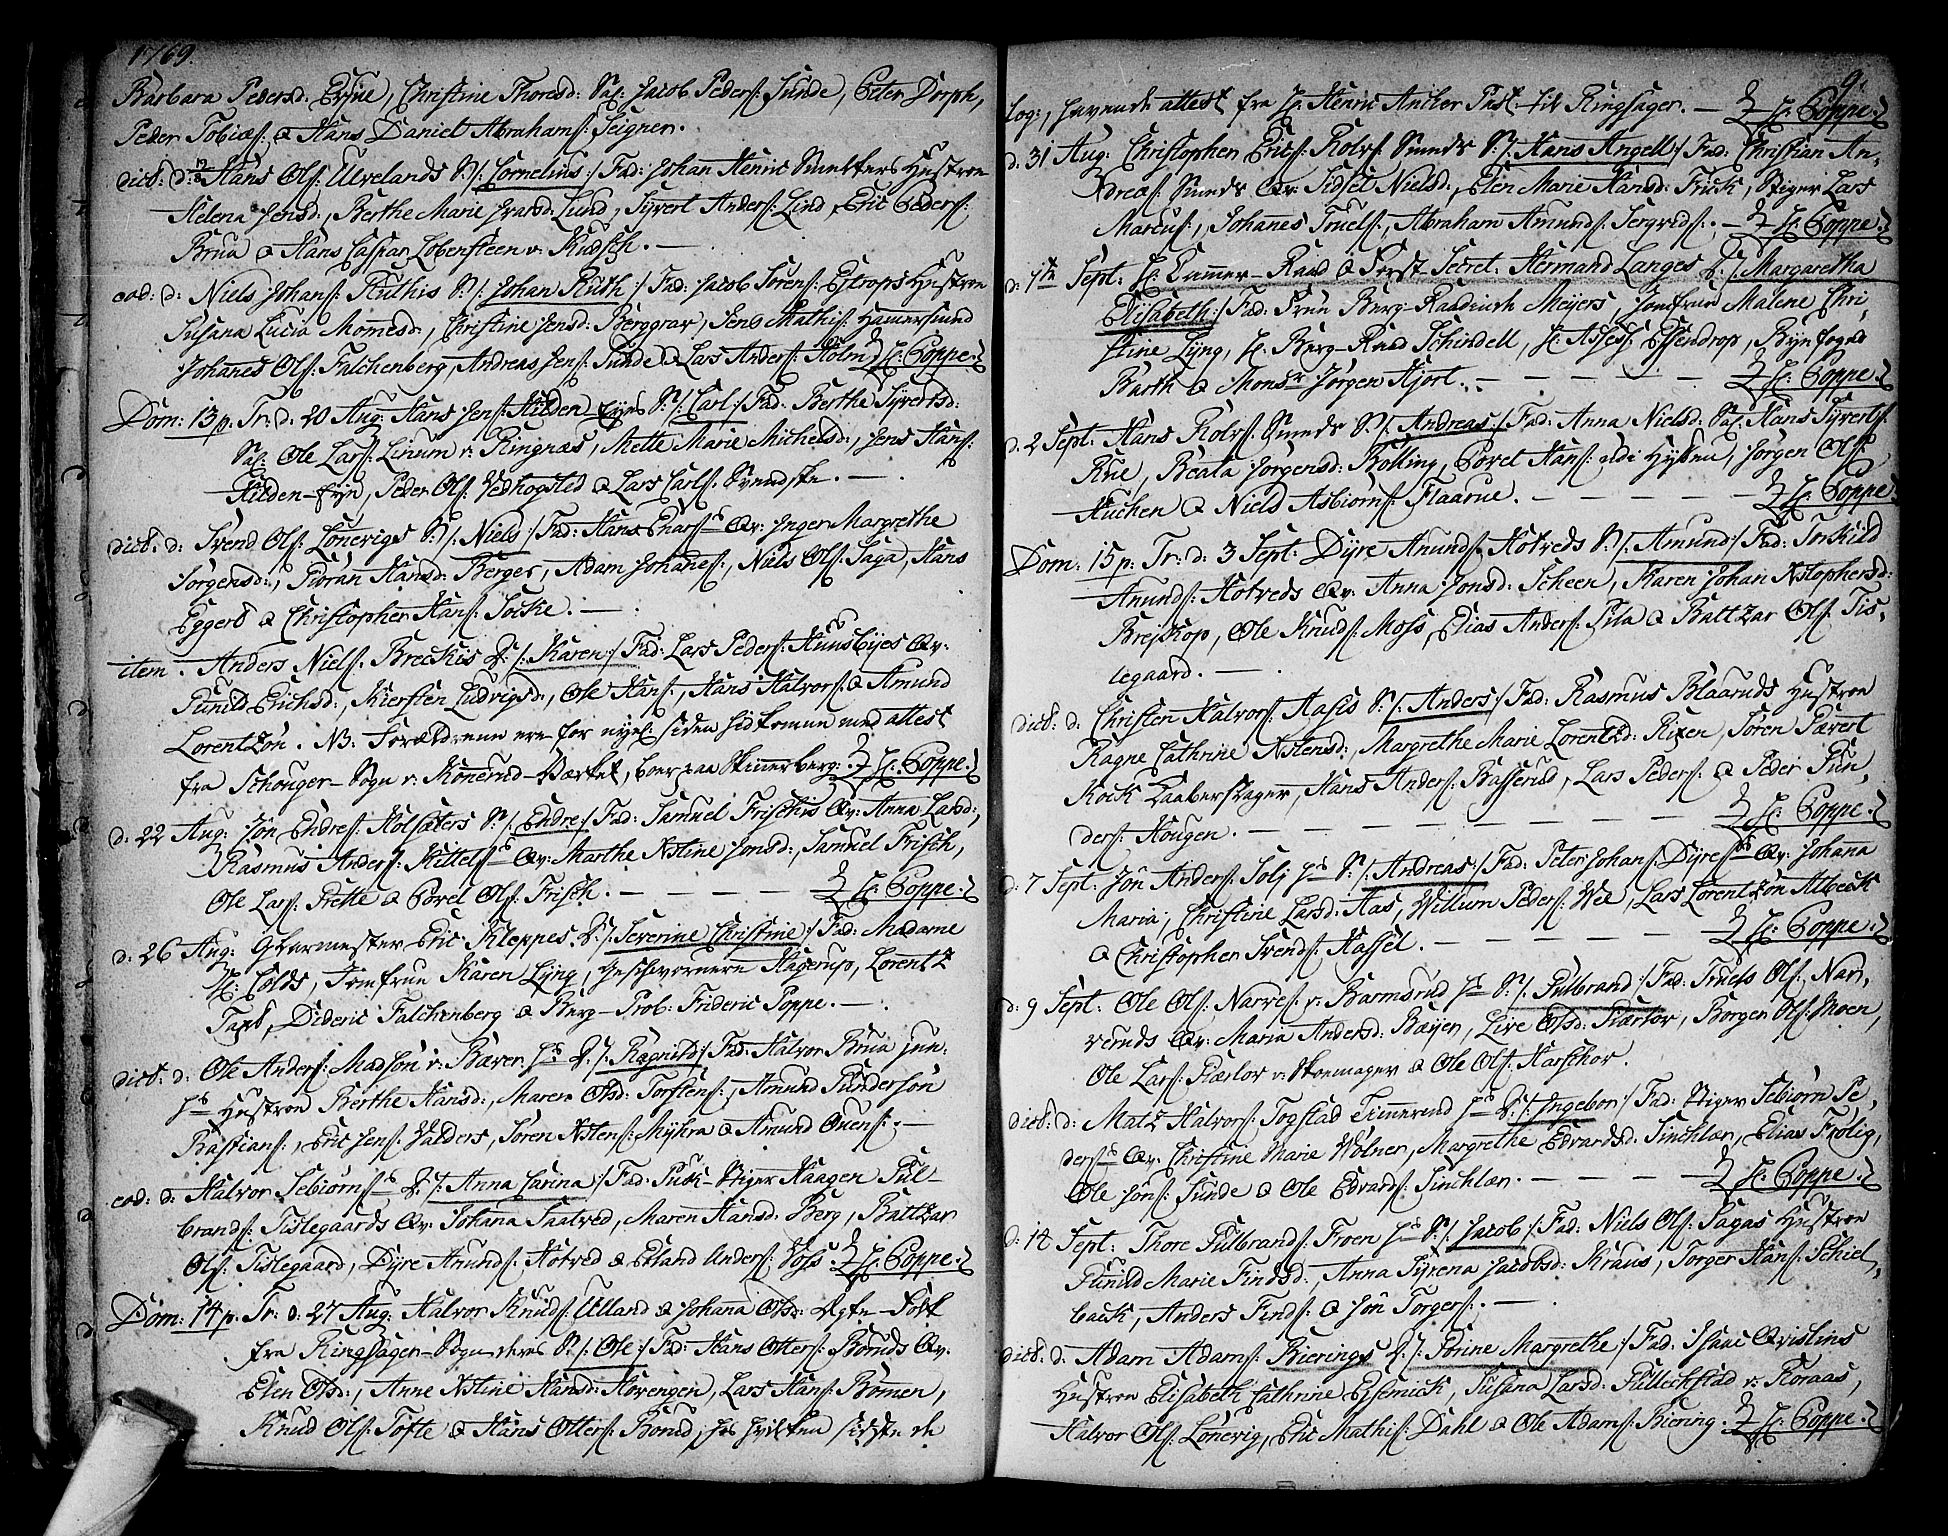 1769.
Barbara Pedersd: Ersine, Christine Thoresd: Saf: Jacob Peders: Sunde, Peter Dorph,
Peder Tobiæs: & Hans Daniel Abrahams: Seigner.
dict: d: Hans Ols: Ulvelands S: /: Cornelius :/ Fad: Johan Henric Smelters Hustroe
Helena Jensd:, Berthe Marie Ivarsd: Lund, Syvert Anders: Lind, Eric Peders:
Brua & Hans Caspar Lobensteen v: Kudsch. —
eod: d: Niels Johans: Ruthis S: /: Johan Ruth :/ Fad: Jacob Sørens: Estrops Hustroe
Susana Lucia Momesd:, Christine Jensd: Berggrav, Jens Mathis: Hamersmed
Johanes Ols: Falchenberg, Andreas Jens: Sunde & Lars Anders: Holm H: Poppe.
Dom: 13 p. Tr: d: 20 Aug: Hans Jens: Hilden-Eyes S: /: Carl :/ Fad: Berthe Syvertsd:
Saf: Ole Lars: Linum v: Ringnæs, Mette Marie Michelsd:, Jens Hans:
Hilden-Eyn, Peder Ols: Vedhogsted & Lars Carls: Svendske. —
dict: d: Svend Ols: Lønevigs S: /: Niels :/ Fad: Hans Enars: Qv: Inger Margrethe
Jørgensd:, Goran Hansd: Berger, Adam Johanes:, Niels Ols: Saga, Hans
Eggert & Christopher Hans: Socke. —
item. Anders Niels: Breckis D: /: Karen :/ Fad: Lars Peders: Hunsbyes Qv:
Gunild Erichsd:, Kiersten Ludvigsd:, Ole Hans:, Hans Halvors: & Amund
Lorentzøn. NB: Forældrene ere for nyel: siden hidkomne med attest
fra Schouger-Sogn v: Konerud-Værket, boer paa Skinnerberg: H: Poppe.
d: 22 Aug: Jøn Endres: Holsæters S: /: Endre :/ Fad: Samuel Frischis Qv: Anna Larsd:,
Rasmus Anders: Kittels: Qv: Marthe Nstine Jonsd:, Samuel Frisch,
Ole Lars: Rette & Povel Ols: Frisch. — — — — H: Poppe.
d: 26 Aug: Glarmester Eric Kleppes D: /: Severine Christine :/ Fad: Madame
H: Colds, Jomfrue Karen Lyng, Geschvornere Hagerup, Lorentz
Taxt, Dideric Falchenberg & Berg-Prob: Frideric Poppe. —
dict: d: Ole Anders: Madsøn v: Bæver Hs D: /: Ragnild :/ Fad: Halvor Brua jun:
Hs Hustroe Berthe Hansd:, Maren Olsd: Torstens:, Amund Gundersøn
Bastians:, Eric Jens: Valders, Søren Nstens: Myhra & Amund Ouens: —
eod: d: Halvor Sebiørns: D: /: Anna Carina :/ Fad: Puck-Stiger Haagen Gul-
brands: Tislegaards Qv: Johana Saatved, Maren Hansd: Berg, Baltzar
Ols: Tislegaard, Dyre Amunds: Hotved & Erland Anders: Voss. H: Poppe.
Dom: 14 p. Tr: d: 27 Aug: Halvor Knuds: Ulland & Johana Olsd: Ægte-Folk
fra Ringsager-Sogn deres S: /: Ole :/ Fad: Hans Otters: Børuds Qv:
Elen Olsd:, Anne Nstine Hansd: Hovengen, Lars Hans: Bømen,
Knud Ols: Tofte & Hans Otters: Borud, hos hvilken sidste de
9.
log:, havende attest fra H: Henric Ancher Past: til Ringsager. — H: Poppe.
d: 31 Aug: Christopher Erics: Rolvs: Smeds S: /: Hans Angell :/ Fad: Christian An-
dreæs: Smeds Qv: Sidsel Nielsd:, Elen Marie Hansd: Truck, Stiger Lars
Marcus:, Johanes Truels:, Abraham Amunds: Sergrids: — H: Poppe.
d: 1te Sept: H: Cammer-Raad & Forst-Secret: Hermand Langes D: /: Margaretha
Elisabeth :/ Fad: Frue Berg-Raadinde Meyers, Jomfrue Malene Chri-
stine Lyng, H: Berg-Raad Schindell, H: Assess: Essendrop, Byefoged
Barth & Monsr Jørgen Hjort. — — — — H: Poppe.
d: 2 Sept: Hans Rolvs: Smeds S: /: Andreas :/ Fad: Anna Nielsd: Saf: Hans Syverts:
Rue, Beata Jørgensd: Bolling, Povel Hans: udi Hytten, Jørgen Ols:
Huchen & Niels Asbiørns: Flaarue. — — — — H: Poppe.
Dom: 15 p. Tr: d: 3 Sept: Dyre Amunds: Hotveds S: /: Amund :/ Fad: Torkild
Amunds: Hotveds Qv: Anna Jonsd: Scheen, Karen Johan Nstophersd:
Brejskop, Ole Knuds: Moss, Elias Anders: Pila & Baltzar Ols: Tis-
legaard. —
dict: d: Christen Halvors: Aasis S: /: Anders :/ Fad: Rasmus Blaaruds Hustroe
Ragne Cathrine Nstensd:, Margrethe Marie Lorentzd: Rixen, Søren Sævert
Kock Kaaberslager, Hans Anders: Basserud, Lars Peders: & Peder Gun-
ders: Hougen. — — — — H: Poppe.
d: 7 Sept: Jøn Anders: Solj Hs S: /: Andreas :/ Fad: Peter Johans: Dyres: Qv: Johana
Maria, Christine Larsd: Aas, Willum Peders: Wee, Lars Lorentzøn Albeck
& Christopher Svends: Hassel. — — — — H: Poppe.
d: 9 Sept: Ole Ols: Narves: v: Barmsrud Hs S: /: Gulbrand :/ Fad: Truels Ols: Nar-
veruds Qv: Maria Andersd: Bøyen, Live Olsd: Kiærlov, Borgen Ols: Moen,
Ole Lars: Kiærlov v: Skoemager & Ole Ols: Harschor.
dict: d: Matz Halvors: Togstad Timmerend Hs D: /: Ingebor :/ Fad: Stiger Sebiørn Pe-
ders: Qv: Christine Marie Wolner, Margrethe Edvardsd: Sinchlær, Elias Frølig,
Ole Jøns: Sunde & Ole Edvards: Sinchlær. — — — — H: Poppe.
d: 12 Sept: Thore Gulbrands: Froen Hs S: /: Jacob :/ Fad: Niels Ols: Sagas Hustroe
Gunild Marie Findsd:, Anna Syrena Jacobsd: Kraus, Torger Hans: Schiel-
back, Anders Finds: & Jøn Torgers: —
dict: d: Adam Adams: Bierings D: /: Dorine Margrethe :/ Fad: Isaac Qvislins
Hustroe Elisabeth Cathrine Essmick, Susana Larsd: Gulleckstad v: Roraas,
Halvor Ols: Lønevig, Eric Mathis: Dahl & Ole Adams: Biering. H: Poppe.